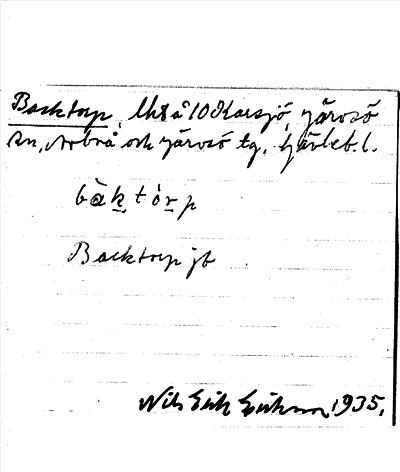 Backtorp, lht å 10 Karsjö, Järvsö
sn, Arbrå och Järvsö tg, Gävleb. l.
bàktòrp
Backtorp jb
Nils Erik Eriksson 1935.